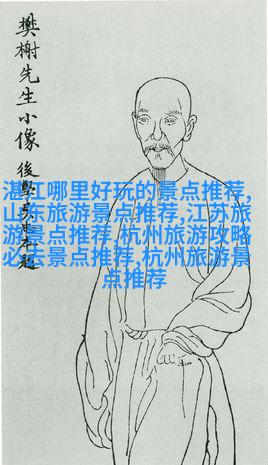 樊榭先生小像
後學
湛江哪里好玩的景点推荐,
山东旅游景点推荐,江苏旅
游景点推荐,杭州旅游攻略
必去景点推荐,杭州旅游景
点推荐